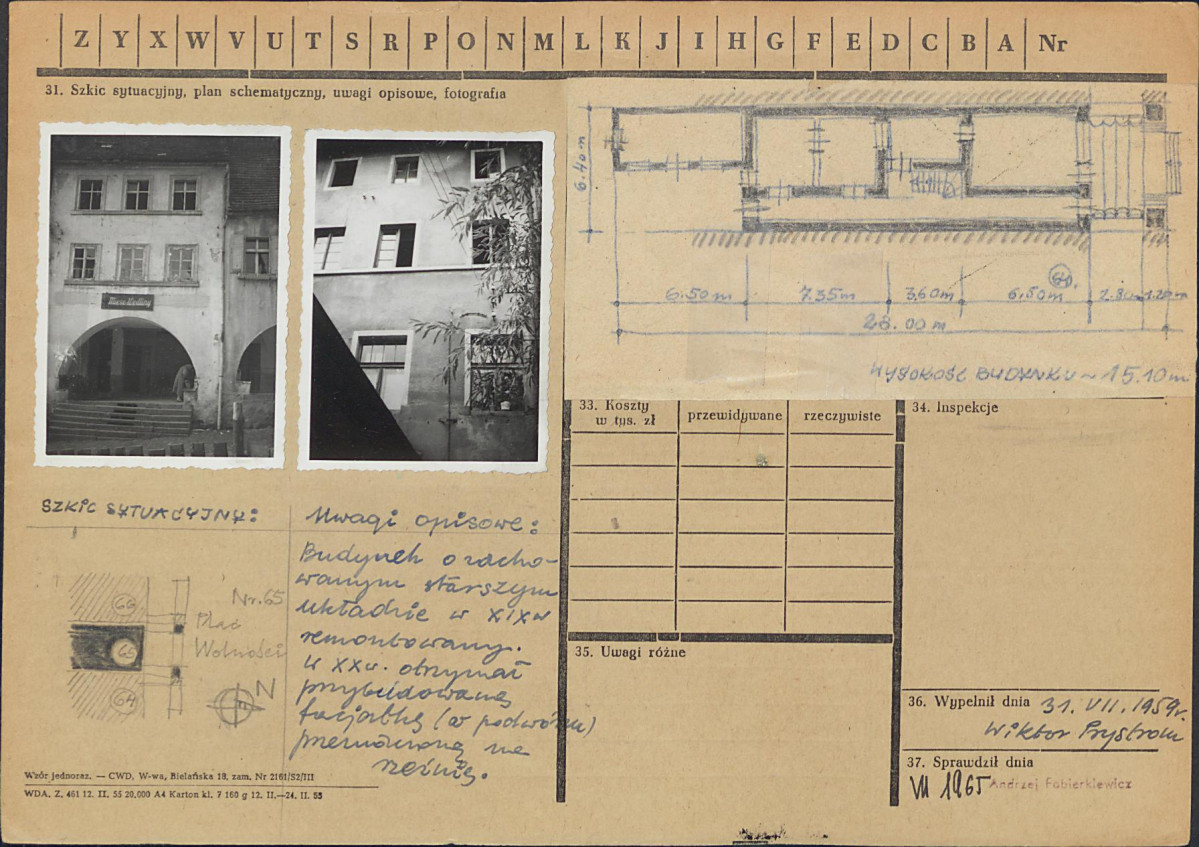 Z Y X W V U T S R P O N M L K J I H G F E D C B A Nr
31. Szkic sytuacyjny, plan schematyczny, uwagi opisowe, fotografia
6.40m
6.50m 7.35m 3,60m 6.50m 2.80m 1.20m
64
28.00m
WYSOKOŚĆ BUDYNKU ~ 15.10m
33. Koszty w tys. zł
przewidywane
rzeczywiste
34. Inspekcje
SZKIC SYTUACYJNY:
66
65
64
Nr. 65
Plac
Wolności
N
Uwagi opisowe:
Budynek o zacho-
wanym starszym
układzie w XIXw
remontowany.
w XXw. otrzymał
przybudowaną
facjatkę (w podwórzu)
35. Uwagi różne
36. Wypełnił dnia 31. VII. 1959r.
Wiktor Prystrom
37. Sprawdził dnia
VII 1965 Andrzej Fabierkiewicz
Wzór jednoraz. — CWD. W-wa, Bielańska 18, zam. Nr 2161/S2/III
WDA. Z. 461 12. II. 55 20.000 A4 Karton kl. 7 160 g 12. II.—24. II. 55